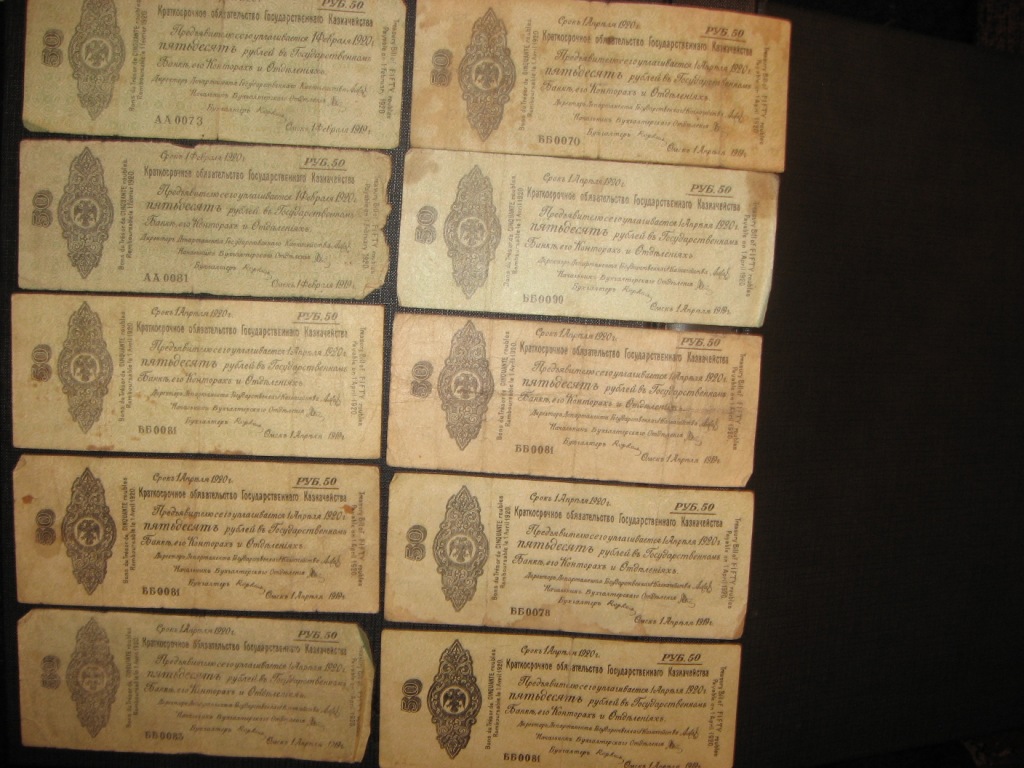 50
РУБ. 50
Краткосрочное обязательство Государственнаго Казначейства
Предъявителю сего уплачивается 1 Февраля 1920 г.
пятьдесятъ рублей въ Государственномъ
Банкѣ, его Конторахъ и Отдѣленіяхъ.
Директоръ Департамента Государственнаго Казначейства
Начальникъ Бухгалтерскаго Отдѣленія
Бухгалтеръ
АА 0073
Омскъ 1 Февраля 1919 г.
Bons du Trésor de CINQUANTE roubles
Remboursable le 1 Février 1920.
Treasury Bill of FIFTY roubles
Payable on 1 February 1920
50
Срокъ 1 Февраля 1920 г.
РУБ. 50
Краткосрочное обязательство Государственнаго Казначейства
Предъявителю сего уплачивается 1 Февраля 1920 г.
пятьдесятъ рублей въ Государственномъ
Банкѣ, его Конторахъ и Отдѣленіяхъ.
Директоръ Департамента Государственнаго Казначейства
Начальникъ Бухгалтерскаго Отдѣленія
Бухгалтеръ
АА 0081
Омскъ 1 Февраля 1919 г.
Bons du Trésor de CINQUANTE roubles
Remboursable le 1 Février 1920.
50
Срокъ 1 Апрѣля 1920 г.
РУБ. 50
Краткосрочное обязательство Государственнаго Казначейства
Предъявителю сего уплачивается 1 Апрѣля 1920 г.
пятьдесятъ рублей въ Государственномъ
Банкѣ, его Конторахъ и Отдѣленіяхъ.
Директоръ Департамента Государственнаго Казначейства
Начальникъ Бухгалтерскаго Отдѣленія
Бухгалтеръ
ББ 0081
Омскъ 1 Апрѣля 1919 г.
Bons du Trésor de CINQUANTE roubles
Remboursable le 1 Avril 1920.
Treasury Bill of FIFTY roubles
Payable on 1 April 1920
50
Срокъ 1 Апрѣля 1920 г.
РУБ. 50
Краткосрочное обязательство Государственнаго Казначейства
Предъявителю сего уплачивается 1 Апрѣля 1920 г.
пятьдесятъ рублей въ Государственномъ
Банкѣ, его Конторахъ и Отдѣленіяхъ.
Директоръ Департамента Государственнаго Казначейства
Начальникъ Бухгалтерскаго Отдѣленія
Бухгалтеръ
ББ 0081
Омскъ 1 Апрѣля 1919 г.
Bons du Trésor de CINQUANTE roubles
Remboursable le 1 Avril 1920.
50
Срокъ 1 Апрѣля 1920 г.
РУБ. 50
Краткосрочное обязательство Государственнаго Казначейства
Предъявителю сего уплачивается 1 Апрѣля 1920 г.
пятьдесятъ рублей въ Государственномъ
Банкѣ, его Конторахъ и Отдѣленіяхъ.
Директоръ Департамента Государственнаго Казначейства
Начальникъ Бухгалтерскаго Отдѣленія
Бухгалтеръ
ББ 0085
Омскъ 1 Апрѣля 1919 г.
50
Срокъ 1 Апрѣля 1920 г.
РУБ. 50
Краткосрочное обязательство Государственнаго Казначейства
Предъявителю сего уплачивается 1 Апрѣля 1920 г.
пятьдесятъ рублей въ Государственномъ
Банкѣ, его Конторахъ и Отдѣленіяхъ.
Директоръ Департамента Государственнаго Казначейства
Начальникъ Бухгалтерскаго Отдѣленія
Бухгалтеръ
ББ 0070
Омскъ 1 Апрѣля 1919 г.
50
Срокъ 1 Апрѣля 1920 г.
РУБ. 50
Краткосрочное обязательство Государственнаго Казначейства
Предъявителю сего уплачивается 1 Апрѣля 1920 г.
пятьдесятъ рублей въ Государственномъ
Банкѣ, его Конторахъ и Отдѣленіяхъ.
Директоръ Департамента Государственнаго Казначейства
Начальникъ Бухгалтерскаго Отдѣленія
Бухгалтеръ
ББ 0090
Омскъ 1 Апрѣля 1919 г.
Bons du Trésor de CINQUANTE roubles
Remboursable le 1 Avril 1920.
Treasury Bill of FIFTY roubles
Payable on 1 April 1920
50
Срокъ 1 Апрѣля 1920 г.
РУБ. 50
Краткосрочное обязательство Государственнаго Казначейства
Предъявителю сего уплачивается 1 Апрѣля 1920 г.
пятьдесятъ рублей въ Государственномъ
Банкѣ, его Конторахъ и Отдѣленіяхъ.
Директоръ Департамента Государственнаго Казначейства
Начальникъ Бухгалтерскаго Отдѣленія
Бухгалтеръ
ББ 0081
Омскъ 1 Апрѣля 1919 г.
Bons du Trésor de CINQUANTE roubles
Remboursable le 1 Avril 1920.
50
Срокъ 1 Апрѣля 1920 г.
РУБ. 50
Краткосрочное обязательство Государственнаго Казначейства
Предъявителю сего уплачивается 1 Апрѣля 1920 г.
пятьдесятъ рублей въ Государственномъ
Банкѣ, его Конторахъ и Отдѣленіяхъ.
Директоръ Департамента Государственнаго Казначейства
Начальникъ Бухгалтерскаго Отдѣленія
Бухгалтеръ
ББ 0078
Омскъ 1 Апрѣля 1919 г.
Bons du Trésor de CINQUANTE roubles
Remboursable le 1 Avril 1920.
Treasury Bill of FIFTY roubles
Payable on 1 April 1920
50
Срокъ 1 Апрѣля 1920 г.
РУБ. 50
Краткосрочное обязательство Государственнаго Казначейства
Предъявителю сего уплачивается 1 Апрѣля 1920 г.
пятьдесятъ рублей въ Государственномъ
Банкѣ, его Конторахъ и Отдѣленіяхъ.
Директоръ Департамента Государственнаго Казначейства
Начальникъ Бухгалтерскаго Отдѣленія
Бухгалтеръ
ББ 0081
Омскъ 1 Апрѣля 1919 г.
Bons du Trésor de CINQUANTE roubles
Remboursable le 1 Avril 1920.
Treasury Bill of FIFTY roubles
Payable on 1 April 1920